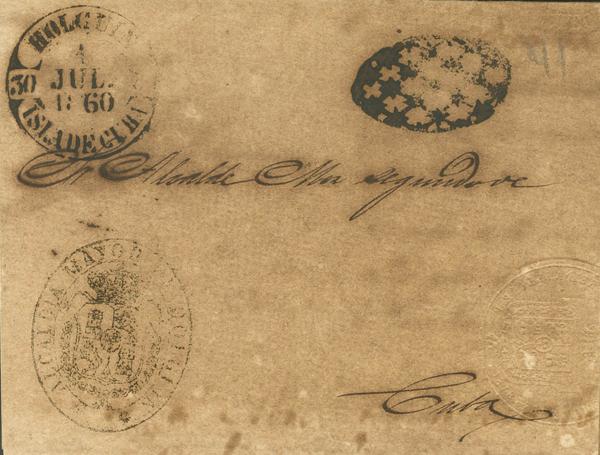 HOLGUIN
1
30 JUL.
1860
ISLA DE CUBA
Sr Alcalde Mor segundo de
ALCALDIA MAYOR DE HOLGUIN
Cuba